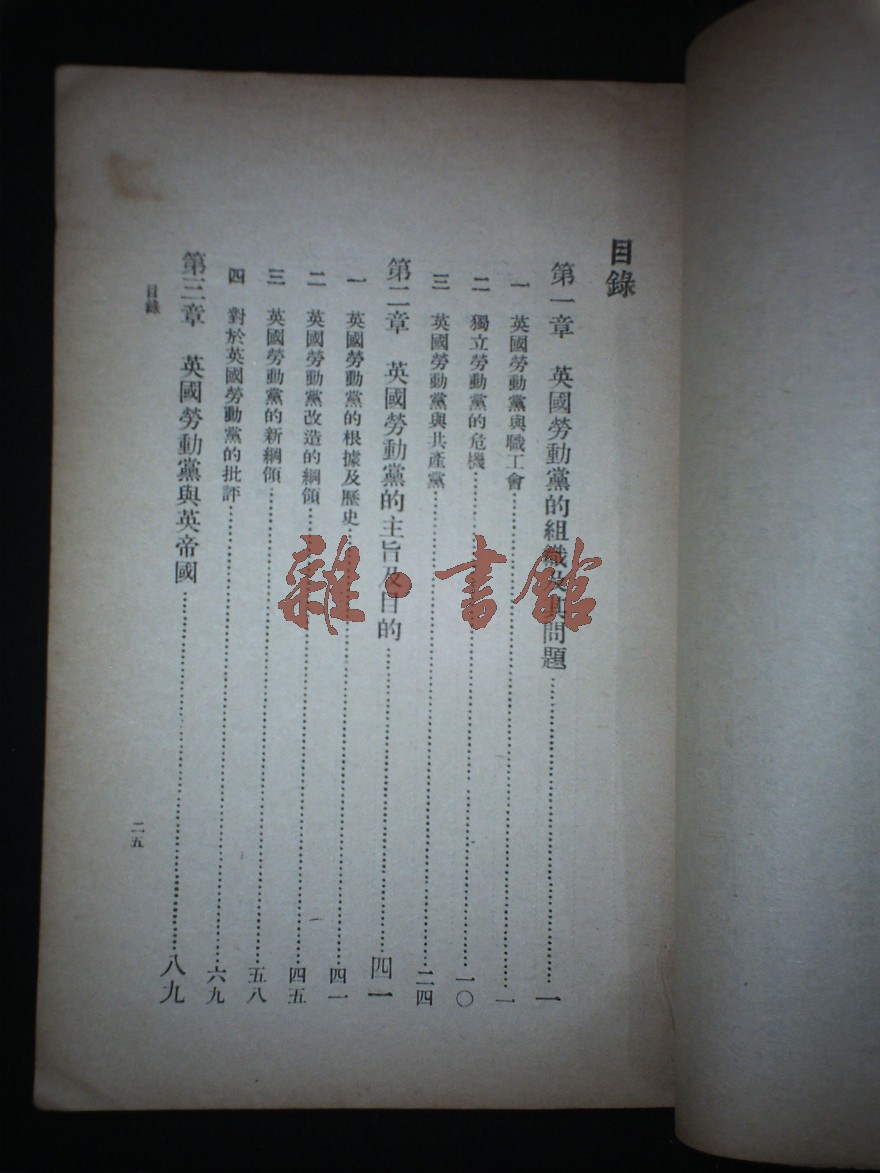 目錄
第一章　英國勞動黨的組織及其問題……一
一　英國勞動黨與職工會……一
二　獨立勞動黨的危機……一〇
三　英國勞動黨與共產黨……二四
第二章　英國勞動黨的主旨及目的……四一
一　英國勞動黨的根據及歷史……四一
二　英國勞動黨改造的綱領……四五
三　英國勞動黨的新綱領……五八
四　對於英國勞動黨的批評……六九
第三章　英國勞動黨與英帝國……八九
目錄
二五
雜·書館